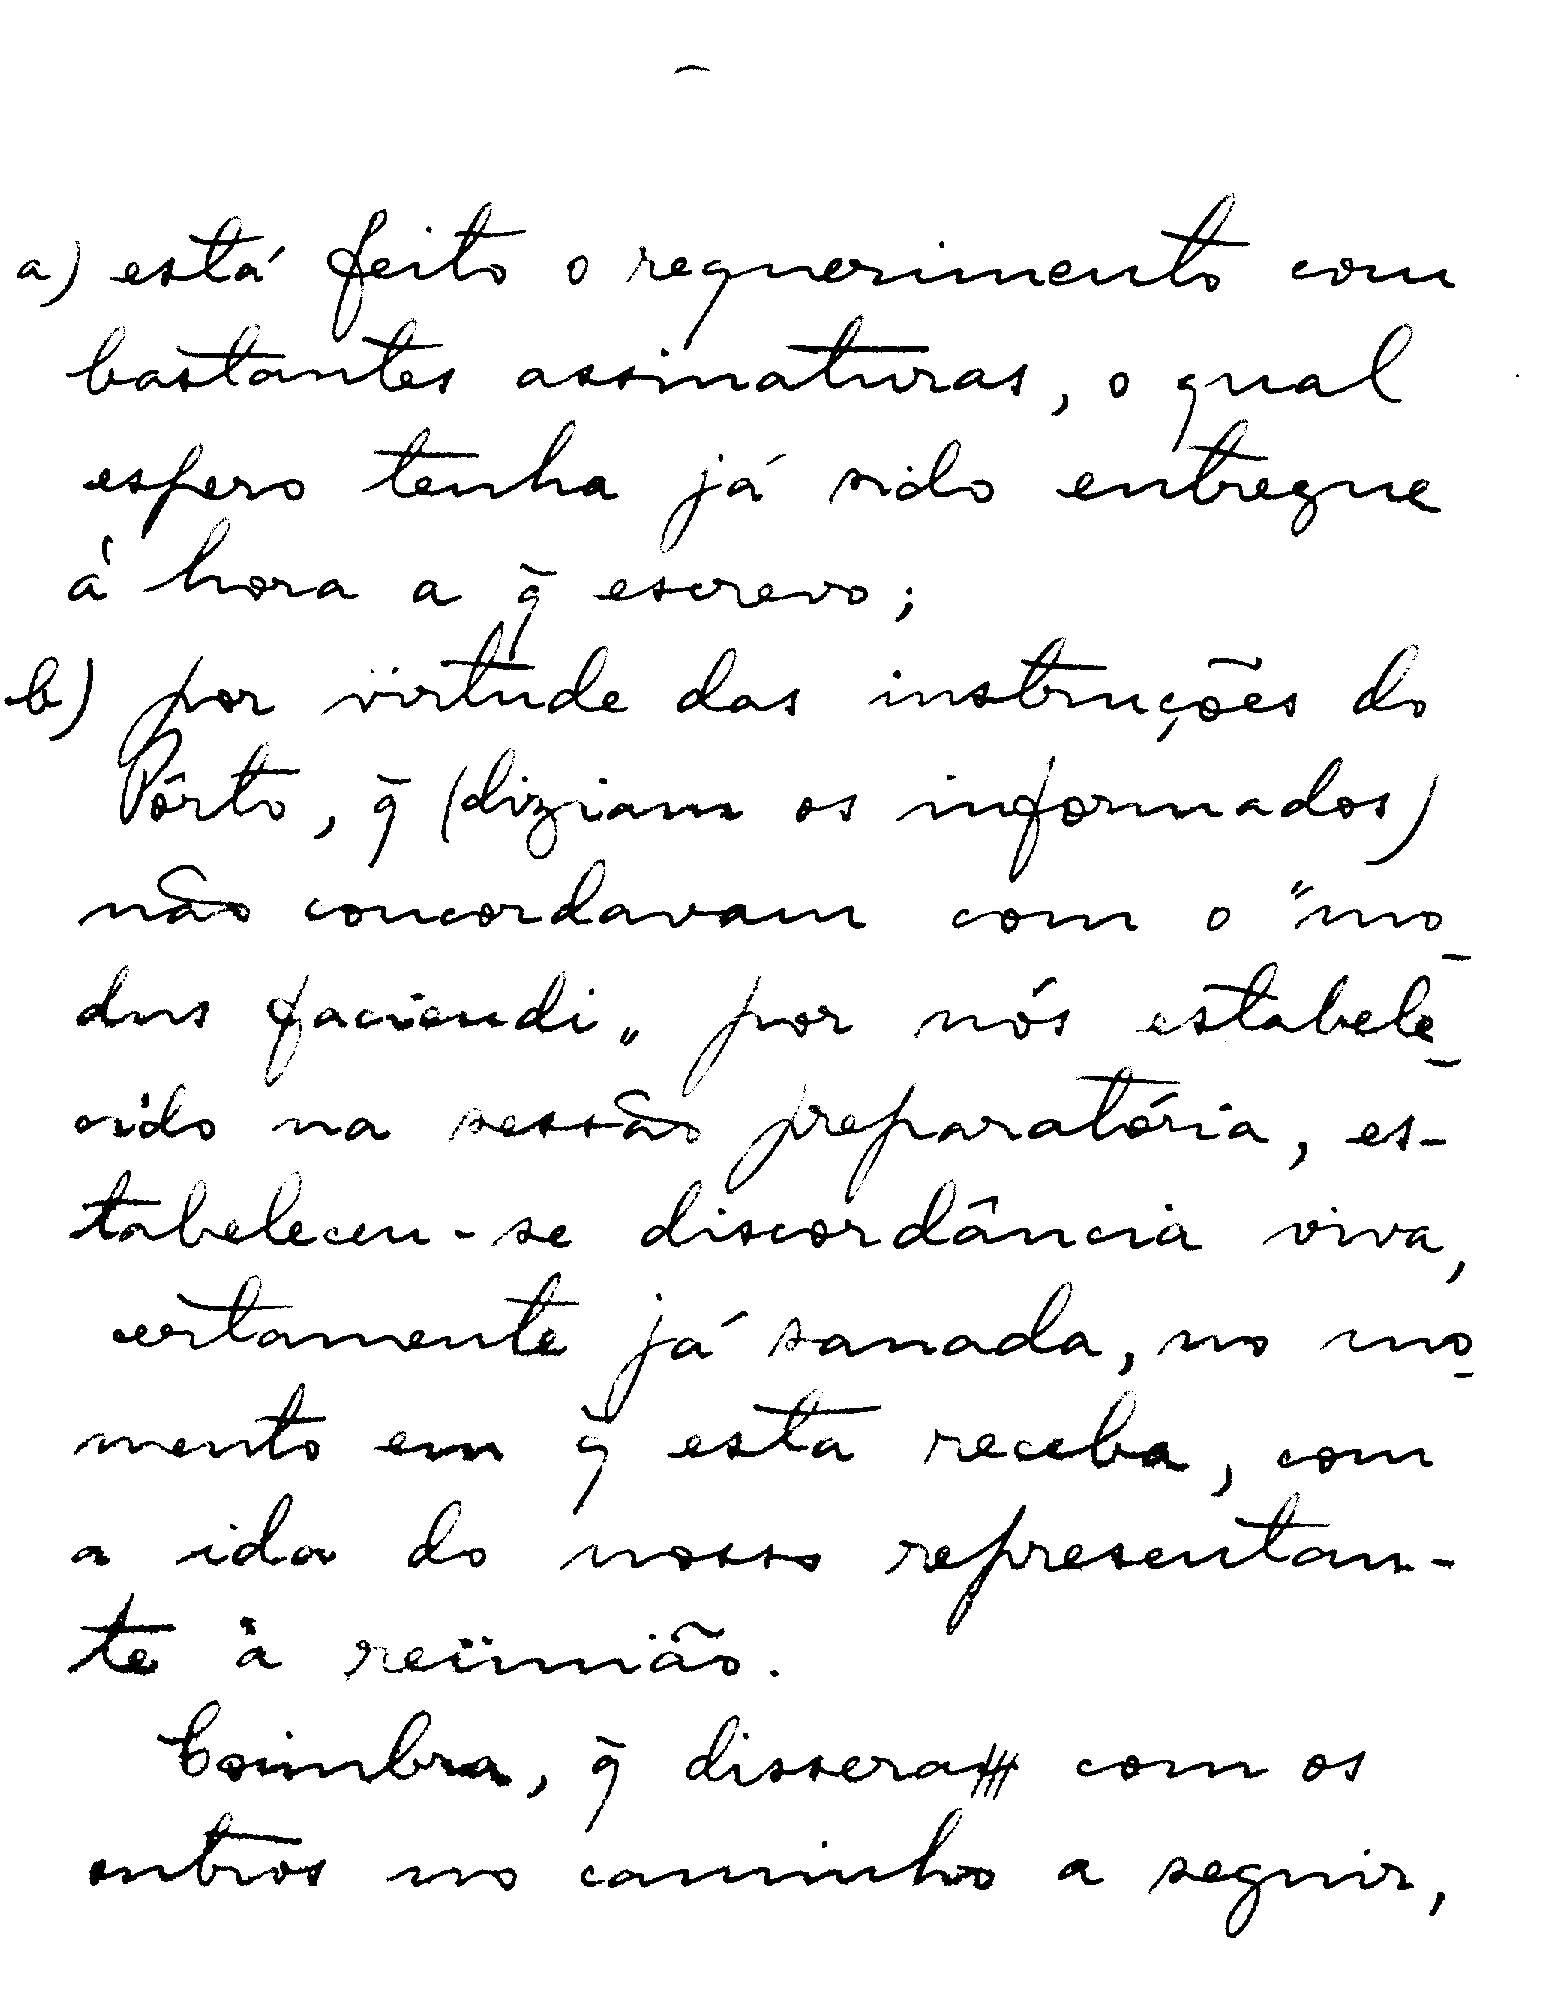 a) está feito o requerimento com
bastantes assinaturas, o qual
espero tenha já sido entregue
à hora a q̃ escrevo;
b) por virtude das instruções do
Pôrto, q̃ (diziam os informados)
não concordavam com o "mo-
dus faciendi" por nós estabele-
cido na sessão preparatória, es-
tabeleceu-se discordância viva,
certamente já sanada, no mo-
mento em q̃ esta receba, com
a ida do nosso representan-
te à reünião.
Coimbra, q̃ dissera com os
outros no caminho a seguir,